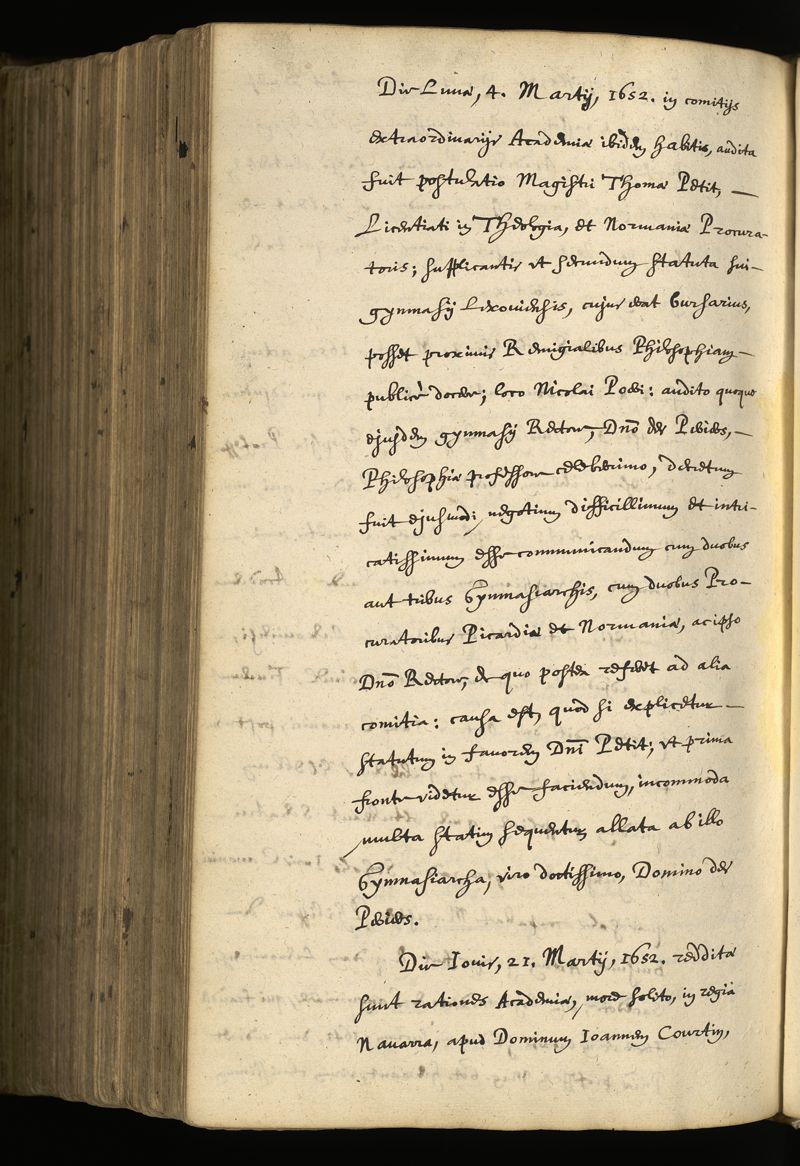 Die Lunæ, 4. Martij, 1652. in comitijs
extraordinarijs Academiæ ibidem habitis, audita
fuit postulatio Magistri Thomæ Petit, —
Licentiati in Theologia, et Normaniæ Procura-
toris; supplicantis vt secundum statuta sui —
gymnasij Lexouiensis, cujus erat bursarius,
posset proximis Remigialibus Philosophiam —
publicè docere; loco Nicolai Poerei: audito quoque
ejusdem gymnasij Rectore, Dno des Perieres, —
Philosophiæ professore celeberrimo, decretum
fuit ejusmodi; negotium difficillimum et intri-
catissimum esse communicandum cum duobus
aut tribus Gymnasiarchis, cum duobus Pro-
curatoribus Picardiæ et Normaniæ, ac ipso
Dno Rectore, de quo postea referet ad alia
comitia: causa est, quod si explicetur —
statutum in fauorem Dni Petit; vt prima
fronte videtur esse faciendum, incommoda
multa statim sequentur allata ab illo
Gymnasiarcha, viro doctissimo, Domino des
Perieres.
Die Iouis, 21. Martij, 1652. reddita
sunt rationes Academiæ, more solito, in regia
Nauarra, apud Dominum Ioannem Courtin,